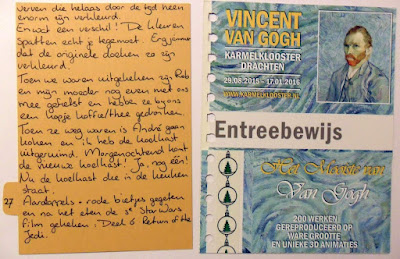 verven die helaas door de tijd heen
enorm zijn verkleurd.
En wat een verschil! De kleuren
spatten echt je tegemoet. Erg jammer
dat de originele doeken zo zijn
verkleurd.
Toen we waren uitgekeken zijn Rob
en mijn moeder nog even met ons
mee gefietst en hebben ze bij ons
een kopje koffie/thee gedronken.
Toen ze weg waren is André gaan
koken en ik heb de koelkast
uitgeruimd. Morgenochtend komt
de nieuwe koelkast! Ja, nog één!
Nu de koelkast die in de keuken
staat.
27
Aardappels + rode bietjes gegeten
en na het eten de 3e Star Wars
film gekeken. Deel 6 Return of the
Jedi.
VINCENT
VAN GOGH
KARMELKLOOSTER
DRACHTEN
29.08.2015 - 17.01.2016
Entreebewijs
Het Mooiste van
Van Gogh
200 WERKEN
GEREPRODUCEERD OP
WARE GROOTTE
EN UNIEKE 3D ANIMATIES